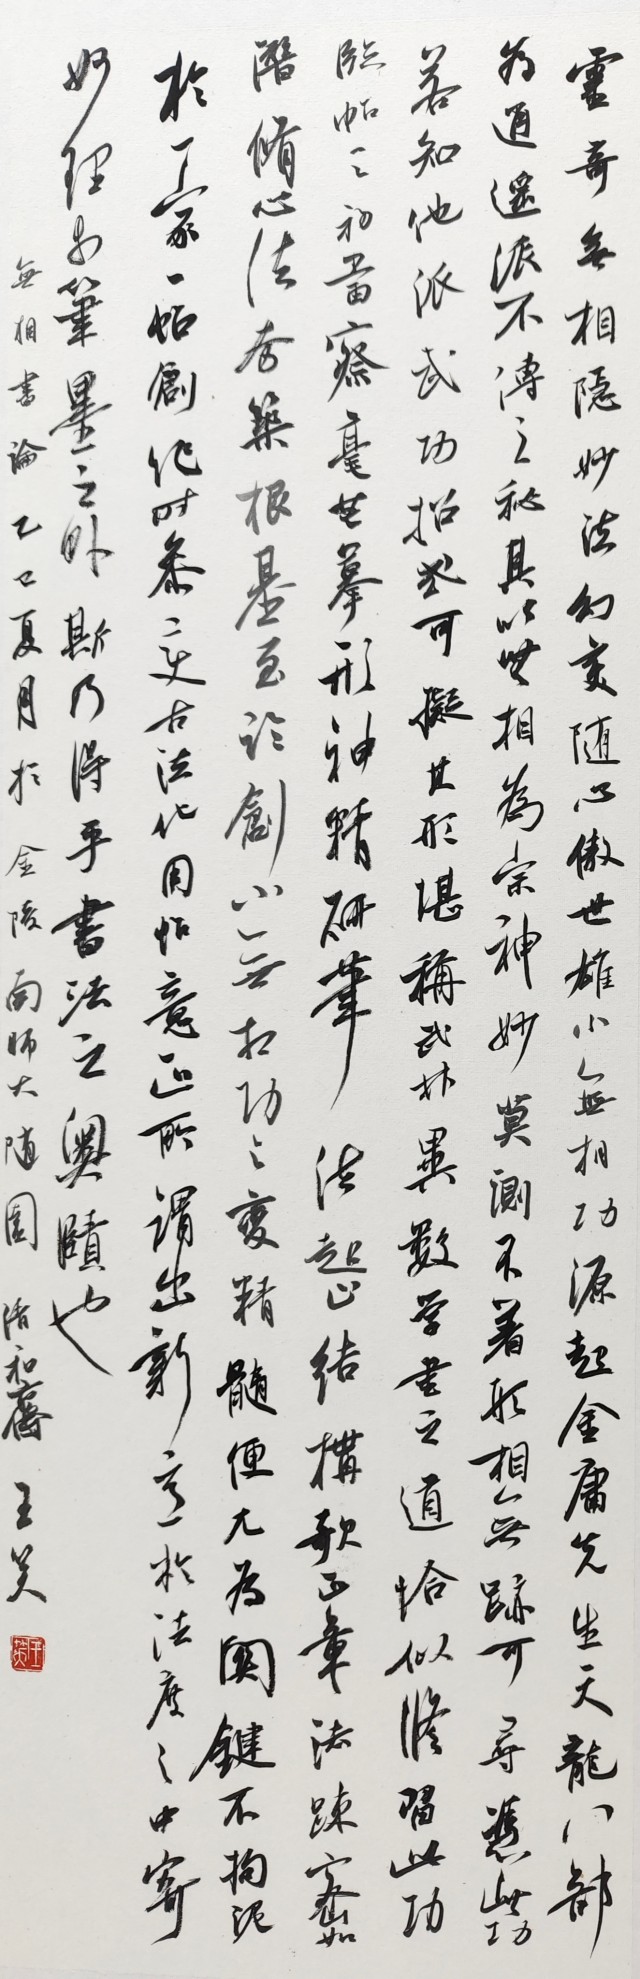 靈奇無相隱妙法幻変随心傲世雄小無相功源起金庸先生天龍八部
為逍遥派不傳之秘其以無相為宗神妙莫測不着形相無跡可尋憑此功
若知他派武功招式可擬其形堪稱武林異數学書之道恰似修習此功
臨帖之初當察毫末摹形神精研筆法起止結構欹正章法疎密如
潛脩心法夯築根基至於創小無相功之變精髓便尤為関鍵不拘泥
於一家一帖創作时参二史古法化用帖意正所謂出新意於法度之中寄
妙理於筆墨之外斯乃得乎書法之奥賾也
無相書論乙巳夏月於金陵南師大随園清和齋王英